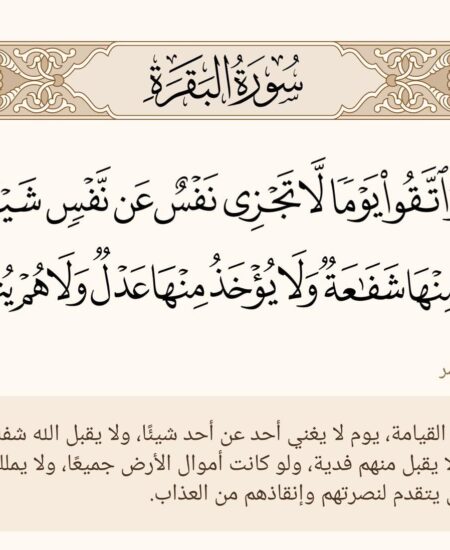 سُورَةُ البَقَرَةِ
وَٱتَّقُوا۟ يَوْمًا لَّا تَجْزِى نَفْسٌ عَن نَّفْسٍ
مِنْهَا شَفَٰعَةٌ وَلَا يُؤْخَذُ مِنْهَا عَدْلٌ وَلَا هُمْ
القيامة، يوم لا يغني أحد عن أحد شيئًا، ولا يقبل الله
يقبل منهم فدية، ولو كانت أموال الأرض جميعًا، ولا
يتقدم لنصرتهم وإنقاذهم من العذاب.